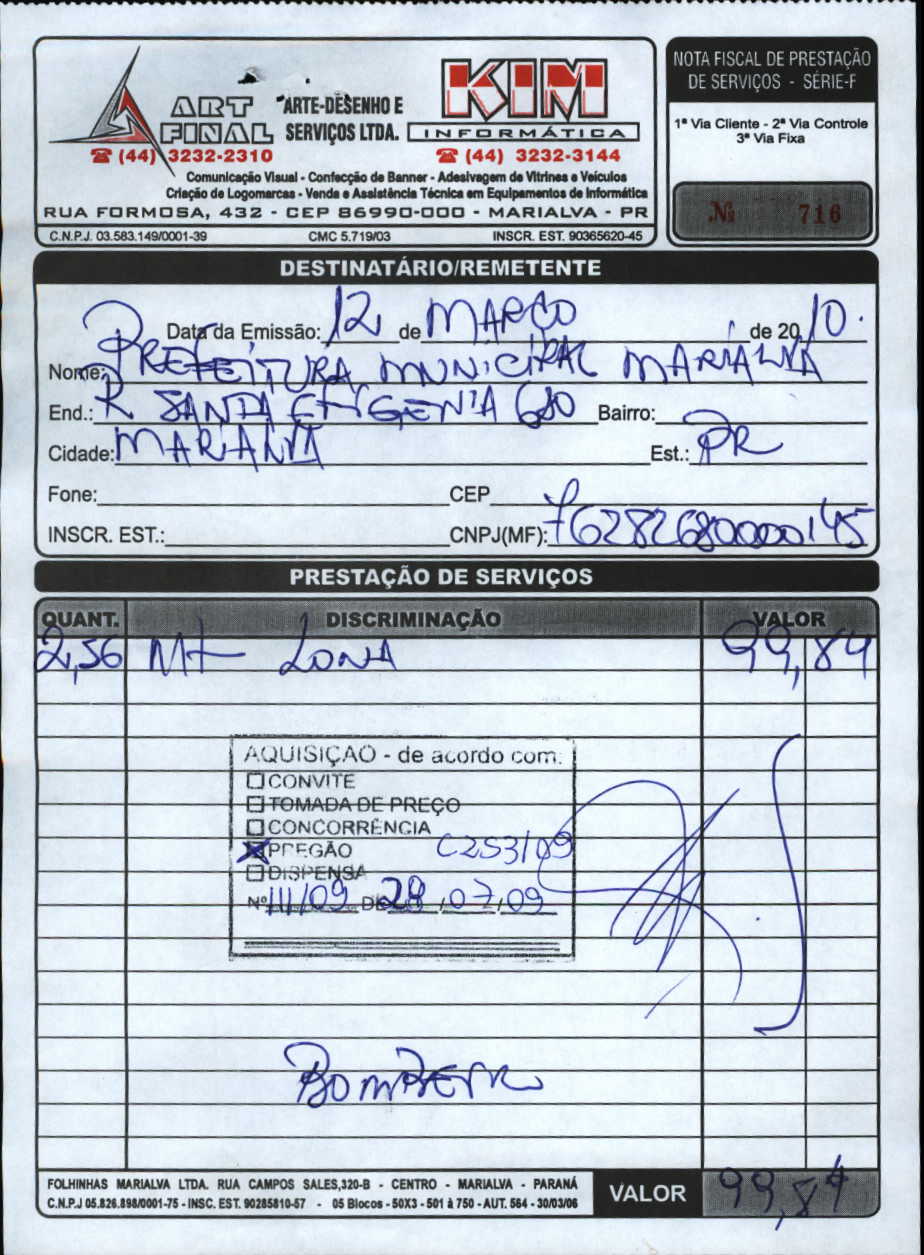 ART FINAL
ARTE-DESENHO E
SERVIÇOS LTDA.
KIM
INFORMÁTICA
(44) 3232-2310
(44) 3232-3144
Comunicação Visual - Confecção de Banner - Adesivagem de Vitrines e Veículos
Criação de Logomarcas - Venda e Assistência Técnica em Equipamentos de Informática
RUA FORMOSA, 432 - CEP 86990-000 - MARIALVA - PR
C.N.P.J. 03.583.149/0001-39 CMC 5.719/03 INSCR. EST. 90365620-45
NOTA FISCAL DE PRESTAÇÃO
DE SERVIÇOS - SÉRIE-F
1ª Via Cliente - 2ª Via Controle
3ª Via Fixa
Nº 716
DESTINATÁRIO/REMETENTE
Data da Emissão: 12 de MARÇO de 2010.
Nome: PREFEITURA MUNICIPAL MARIALVA
End.: R SANTA EFIGENIA 680 Bairro:
Cidade: MARIALVA Est.: PR
Fone: CEP
INSCR. EST.: CNPJ(MF): 76282680000145
PRESTAÇÃO DE SERVIÇOS
QUANT. DISCRIMINAÇÃO VALOR
2,56 Mt LONA 99,84
AQUISIÇÃO - de acordo com:
CONVITE
TOMADA DE PREÇO
CONCORRÊNCIA
PREGÃO C253/09
DISPENSA
Nº 111/09 DE 28/07/09
FOLHINHAS MARIALVA LTDA. RUA CAMPOS SALES,320-B - CENTRO - MARIALVA - PARANÁ
C.N.P.J 05.826.898/0001-75 - INSC. EST. 90285810-57 - 05 Blocos - 50X3 - 501 à 750 - AUT. 564 - 30/03/06
VALOR 99,84